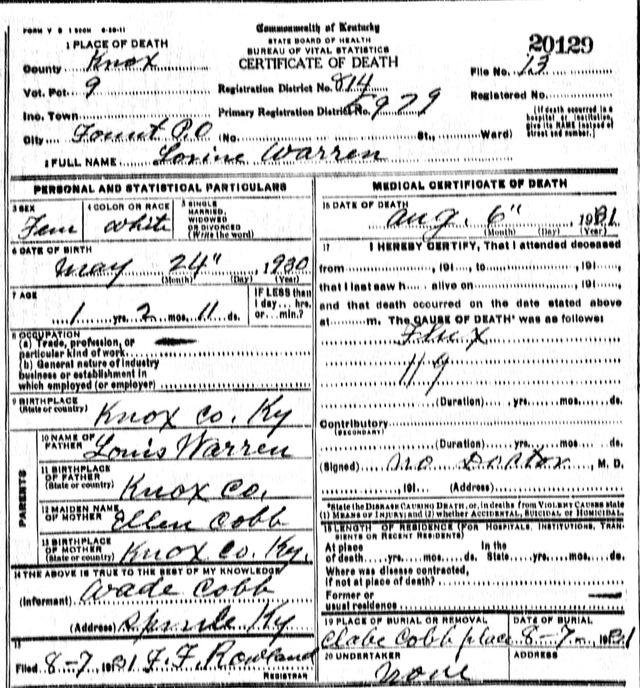 FORM V S 1 500M 6-20-11
Commonwealth of Kentucky
STATE BOARD OF HEALTH
BUREAU OF VITAL STATISTICS
CERTIFICATE OF DEATH
20129
File No. 13
Registered No.
[If death occurred in a hospital or institution, give its NAME instead of street and number.]
1 PLACE OF DEATH
County Knox
Vot. Pct. 9
Registration District No. 814
Inc. Town
Primary Registration District No. 5979
City Fount P.O (No. St., Ward)
2 FULL NAME Lovine Warren
PERSONAL AND STATISTICAL PARTICULARS
3 SEX Fem
4 COLOR OR RACE white
5 SINGLE MARRIED, WIDOWED OR DIVORCED (Write the word)
6 DATE OF BIRTH
May 24" 1930
(Month) (Day) (Year)
7 AGE
1 yrs. 2 mos. 11 ds.
IF LESS than 1 day... hrs. or... min.?
8 OCCUPATION
(a) Trade, profession, or particular kind of work
(b) General nature of industry business or establishment in which employed (or employer)
9 BIRTHPLACE (State or country) Knox Co. Ky
PARENTS
10 NAME OF FATHER Louis Warren
11 BIRTHPLACE OF FATHER (State or country) Knox Co,
12 MAIDEN NAME OF MOTHER Ellen Cobb
13 BIRTHPLACE OF MOTHER (State or country) Knox Co. Ky.
14 THE ABOVE IS TRUE TO THE BEST OF MY KNOWLEDGE
(Informant) Wade Cobb
(Address) Sprule Ky
15
Filed 8-7 1931 F. F. Rowland
REGISTRAR
MEDICAL CERTIFICATE OF DEATH
16 DATE OF DEATH
Aug. 6" 1931
(Month) (Day) (Year)
17 I HEREBY CERTIFY, That I attended deceased
from , 191 , to , 191 ,
that I last saw h alive on , 191 ,
and that death occurred on the date stated above
at m. The CAUSE OF DEATH* was as follows:
Flux
119
(Duration) yrs. mos. ds.
Contributory
(SECONDARY)
(Duration) yrs. mos. ds.
(Signed) No Doctor, M. D.
, 191 (Address)
*State the DISEASE CAUSING DEATH, or, in deaths from VIOLENT CAUSES state (1) MEANS OF INJURY; and (2) whether ACCIDENTAL, SUICIDAL or HOMICIDAL.
18 LENGTH OF RESIDENCE (FOR HOSPITALS, INSTITUTIONS, TRANSIENTS OR RECENT RESIDENTS)
At place of death yrs. mos. ds. In the State yrs. mos. ds.
Where was disease contracted, if not at place of death?
Former or usual residence
19 PLACE OF BURIAL OR REMOVAL Clabe Cobb place
DATE OF BURIAL 8-7- 1931
20 UNDERTAKER None
ADDRESS